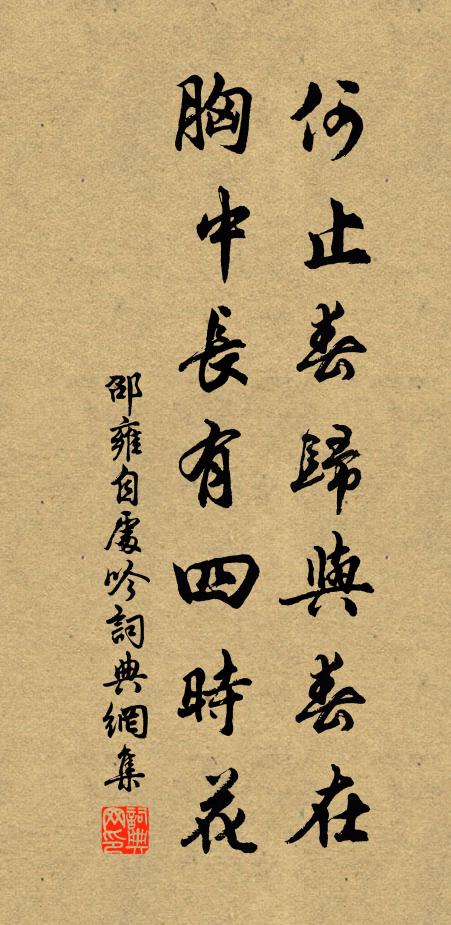 何止春歸與春在
胸中長有四時花
邵雍自處吟詞典網集
詞典網印